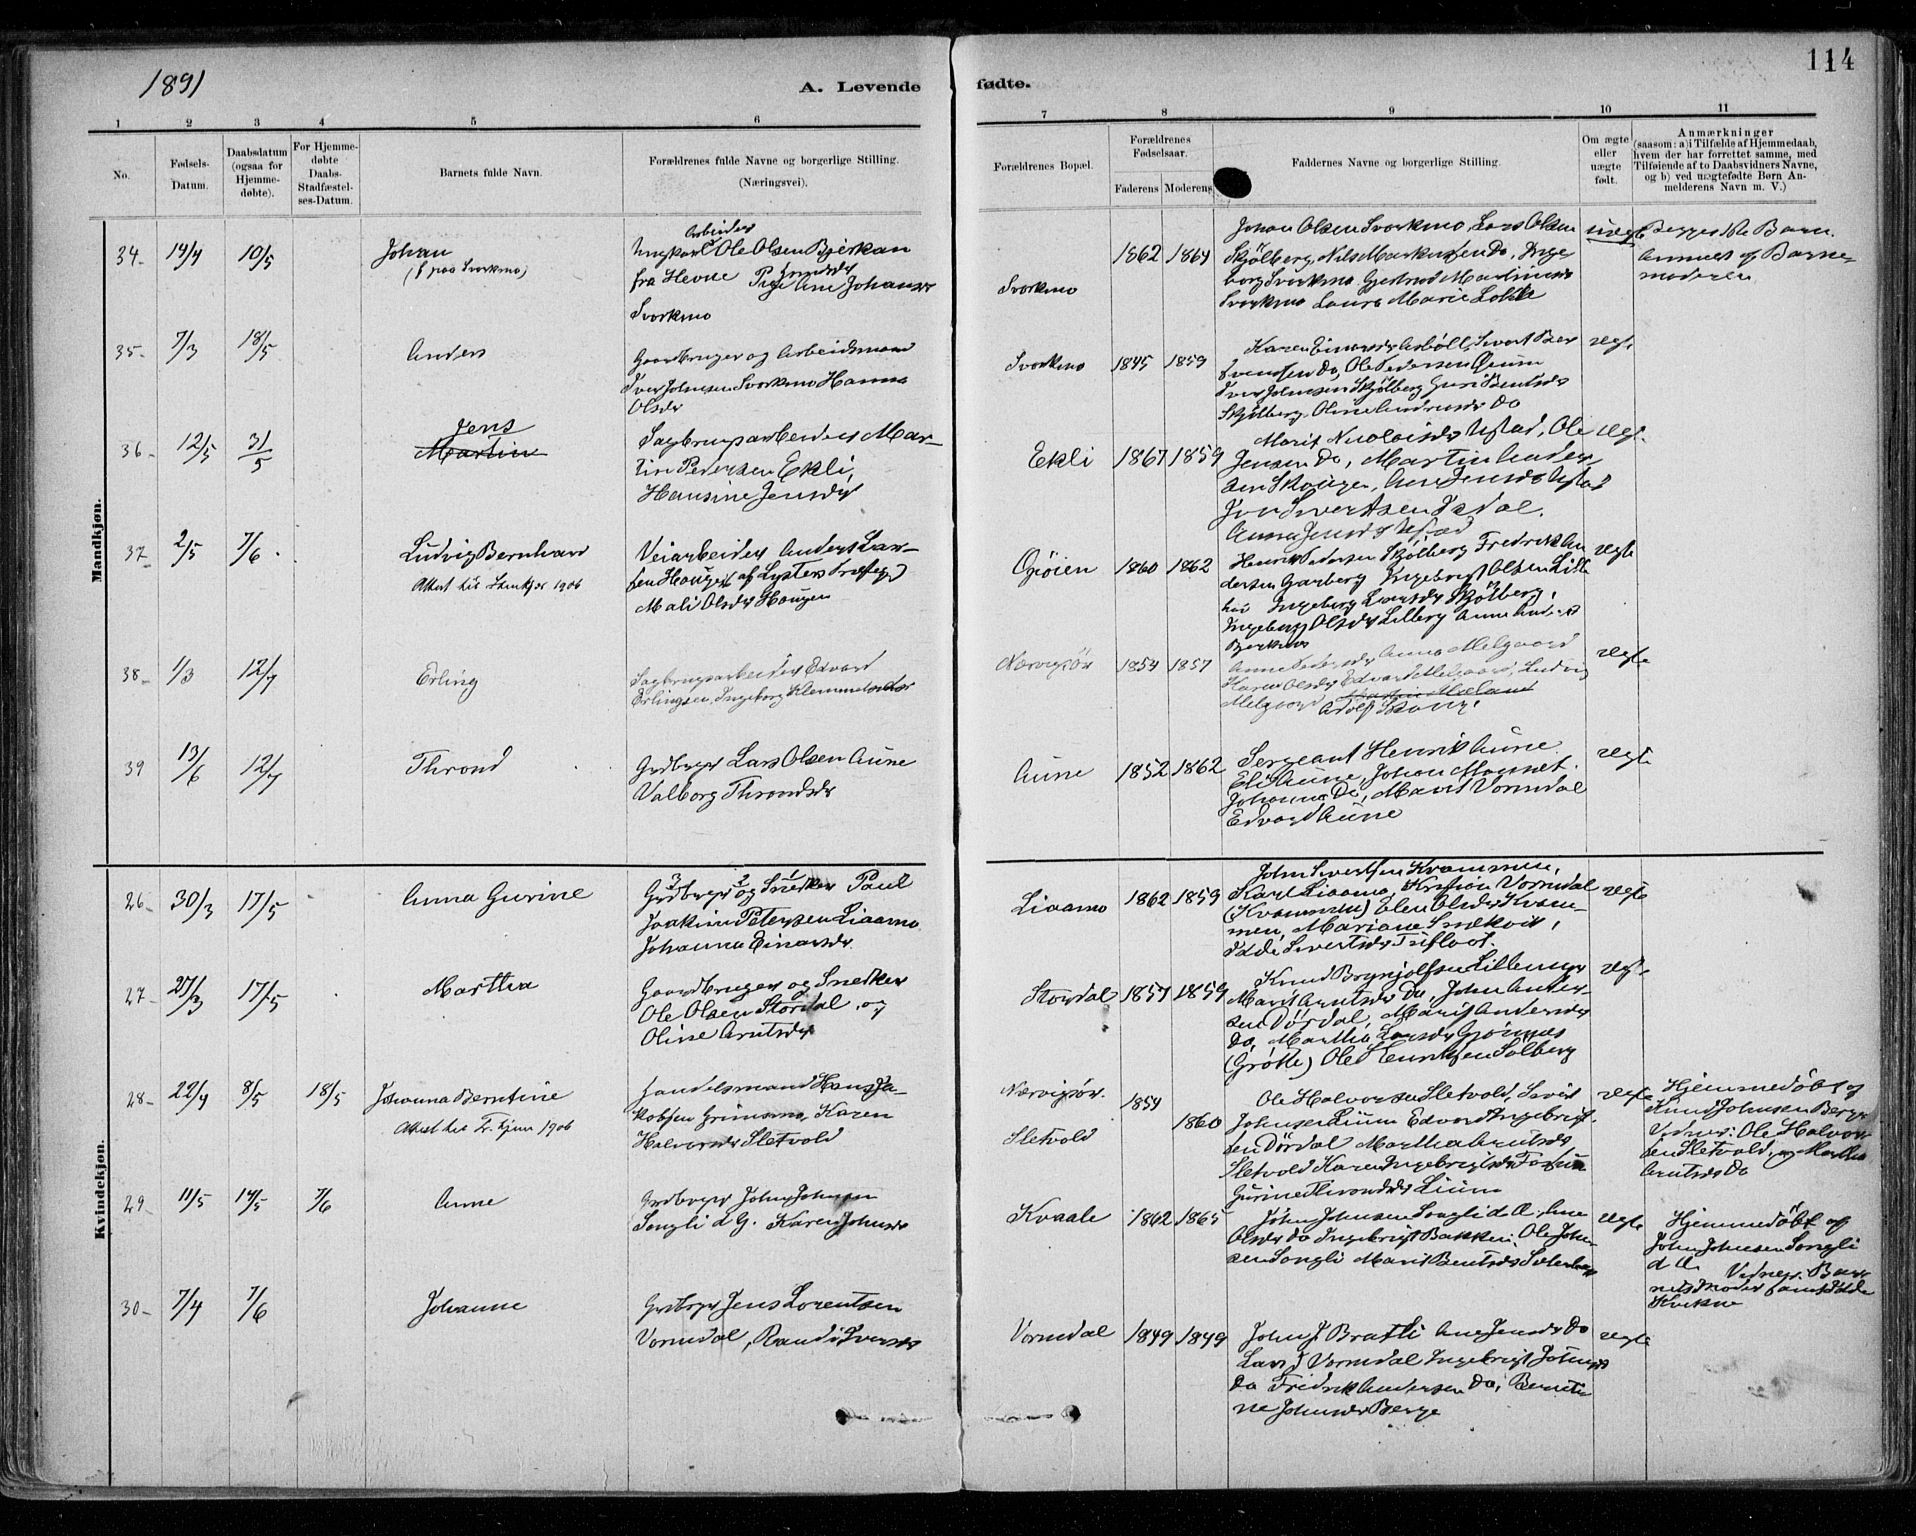 1891
A. Levende fødte.
114
1 2 3 4 5 6 7 8 9 10 11
No.
Fødsels-Datum.
Daabsdatum (ogsaa for Hjemmedøbte).
For Hjemmedøbte Daabs-Stadfæstelses-Datum.
Barnets fulde Navn.
Forældrenes fulde Navne og borgerlige Stilling.
(Næringsvei).
Forældrenes Bopæl.
Forældrenes Fødselsaar.
Faderens Moderens
Faddernes Navne og borgerlige Stilling.
Om ægte eller uægte født.
Anmærkninger
(saasom: a) i Tilfælde af Hjemmedaab, hvem der har forrettet samme, med Tilføiende af to Daabsvidners Navne, og b) ved uægtefødte Børn Anmelderens Navn m. V.)
Mandkjøn.
34- 19/4 10/5 Johan
(f paa Svorkmo)
Arbeider
Ungkarl Ole Olsen Bjerkan
fra Hevne Pige Ane Johans
Svorkmo
Svorkmo 1862 1864
Johan Olsen Svorkmo, Lars Olsen
Skjølberg, Nils Markussen Do, Inge
borg Svorkmo Gjertrud Martinusd
Svorkmo Laura Marie Lokke
uægte
Begges 1ste Barn.
Anmeldt af Barne-
moderen
35- 7/3 18/5 Anders
Gaardbruger og Arbeidsmand
Iver Johnsen Svorkmo Hanna
Olsdr
Svorkmo 1845 1859
Karen Einarsdr Asbøll, Sivert Ber
Svendsen Do, Ole Pedersen Øium
Iver Johnsen Skjølberg Guri Bentsdr
Skjølberg, Oline Andersdr Do
ægt.
36- 12/5 31/5 Jens
Martin
Sagbrugsarbeider Mar-
tin Pedersen Ekli,
Hansine Jensdr
Ekli 1867 1859
Marit Nicolaisdr Ustad, Ole
Jensen Do, Martin Ander
sen Skouge, Ane Jensdr Ustad
Jon Sivertsen Isdal.
Anna Jensdr Ustad
ægt.
37- 2/5 7/6 Ludvig Bernhard
Attest til Stenkjær 1906
Veiarbeider Anders Lar-
sen Hougen (af Lysters Præstegj)
Mali Olsdr Hougen
Gjøien 1860 1862
Henrik Pedersen Skjølberg Fredrik An
dersen Garberg Ingebrigt Olsen Lille
hov Ingeborg Larsdr Skjølberg,
Ingeborg Olsdr Lilberg Anne
Bjerkmo
ægte
38- 1/3 12/7 Erling
Sagbrugsarbeider Edvard
Erlingsen, Ingeborg Klemmetsdatter
Nærvigsør 1854 1857
Anne Pedersdr Anna Melgaard
Karen Olsdr Edvard Melgaard, Ludvig
Melgaard
Adolf Skouge
ægte
39 13/6 12/7 Thrond
Grdbruger Lars Olsen Aune
Valborg Throndsdr
Aune 1852 1862
Sergeant Henrik Aune
Eli Aune, Johan Monset.
Johanna Do, Marit Vormdal
Edvard Aune
ægte
Kvindekjøn.
26- 30/3 17/5 Anna Gurine
3 2 1
Grdbruger og Snedker Paul
Joakim Petersen Liaamo
Johanna Einarsdr
Liaamo 1862 1859
John Sivertsen Krammen,
Karl Liaamo, Kristian Vormdal
Elen Olsdr Kram-
men, Mariane Snekvik,
Ildri Sivertsdr
ægte
27- 27/3 17/5 Martha
Gaardbruger og Snedker
Ole Olsen Stordal og
Oline Arntsdr
Stordal 1857 1859
Knud Brynjolfsen Lillemyr
Marit Arntsdr Do, John Ander-
sen Dørdal, Marit Andersdr
Do, Martha Larsdr Gjønnes
(Grøtte) Ole Henriksen Solberg
ægt.
28- 22/4 8/5 18/5 Johanna Berntine
Attest til Tr.hjem 1906
Handelsmand Hans Ja-
kobsen Grimsmo, Karen
Halvorsdr Sletvold
Nærvigsør.
Sletvold
1854 1860
Ole Halvorsen Sletvold, Sivert
Johnsen Lium Edvard Ingebrigt-
sen Dørdal Martha Arntsdr
Sletvold Karen Ingebrigtsdr
Gurine Throndsdr Lium
ægte
Hjemmedøbt af
Knud Johnsen Berge
Vidner: Ole Halvor
sen Sletvold, og Martha
Arntsdr Do
29- 11/5 14/5 7/6 Anne
Grdbruger John Johnsen
Songli d Y. Karen Johnsdr
Kvaale 1862 1865
John Johnsen Songli d Æ. Ane
Olsdr Do Ingebrigt Bakken, Ole John-
sen Songli Marit Bentsdr
ægte
Hjemmedøbt af
John Johnsen Songli
d Æ. Vidner: Bar-
nets Moder samt Ildri
Kvikne
30- 7/4 7/6 Johanne
Grdbruger Jens Lorentsen
Vormdal, Randi Iversdr
Vormdal 1849 1849
John J Bratli Ane Jensdr Do
Lars J Vormdal Ingebrigt Johnsen
Do Fredrik Andersen Do, Bernti
ne Johnsdr Berge
ægte